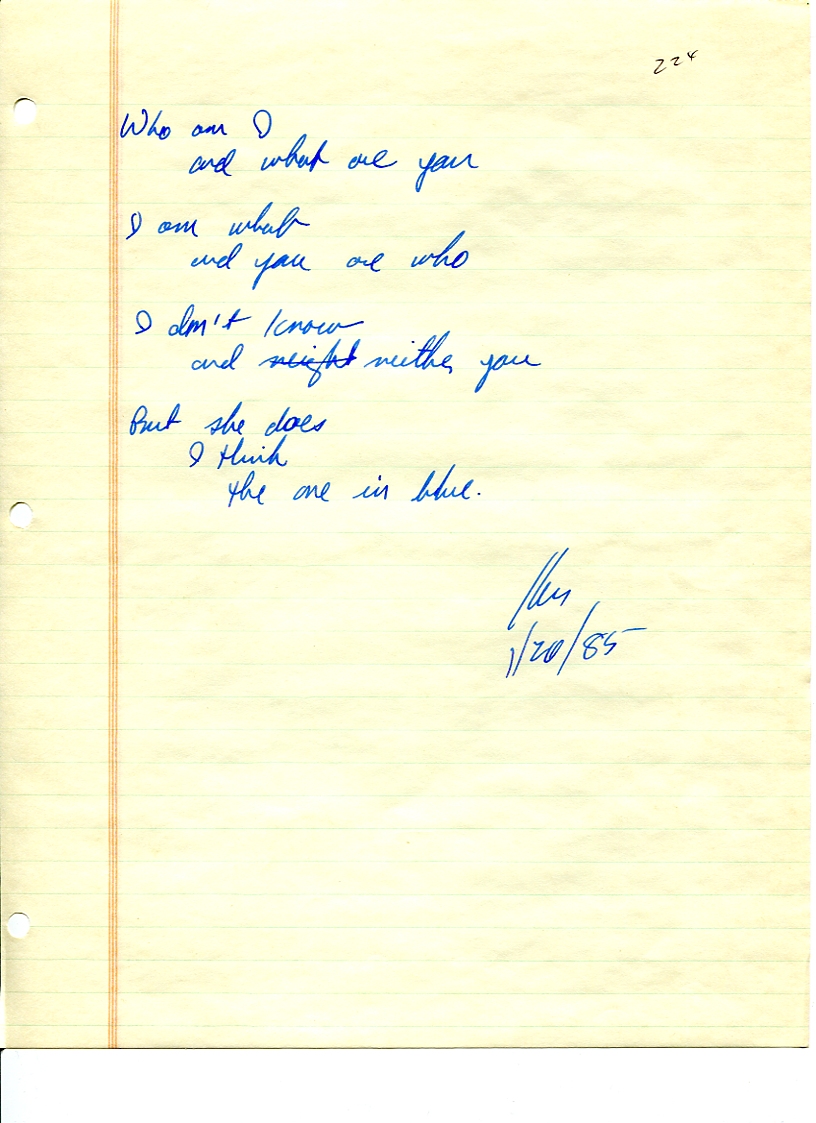 224
Who am I
and what are you
I am what
and you are who
I don't know
and neither you
But she does
I think
the one in blue.
1/20/85